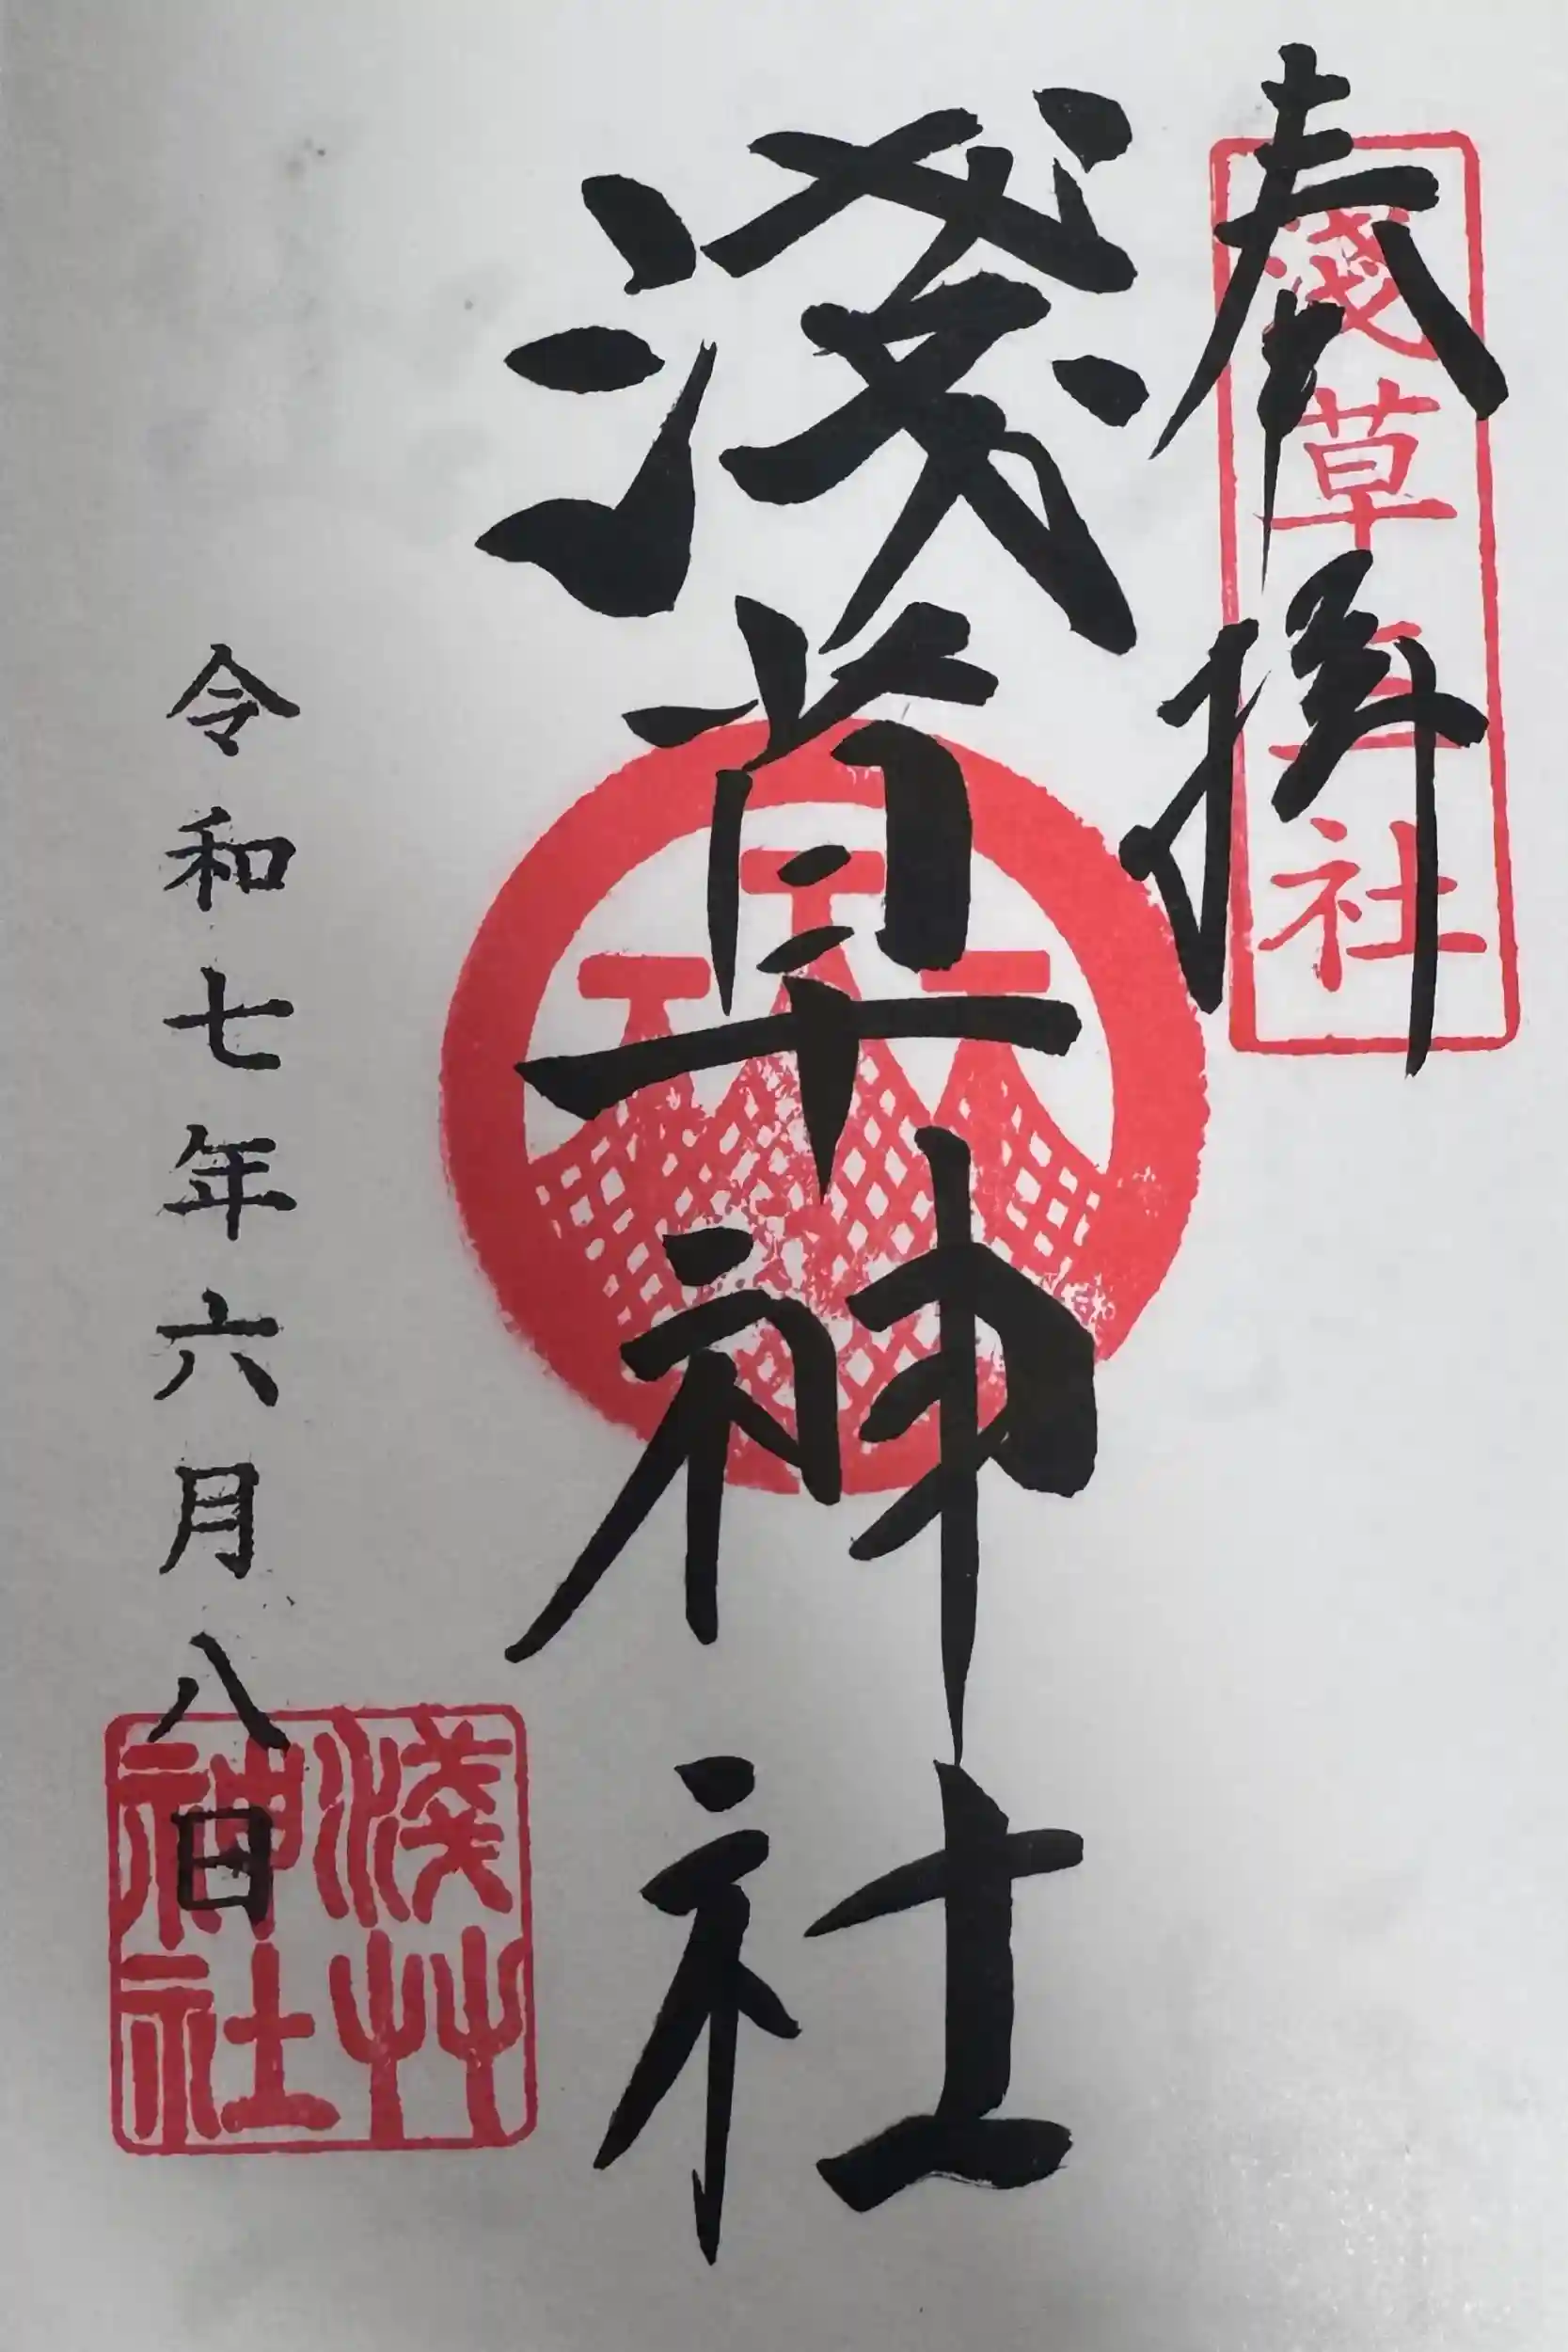 奉拝
淺草三社
淺草神社
令和七年六月八日
淺草
神社